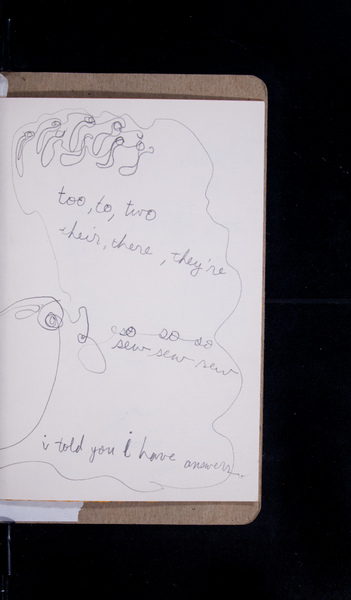 too, to, two
their, there, they're
so so so
sew sew sew
i told you i have answers.